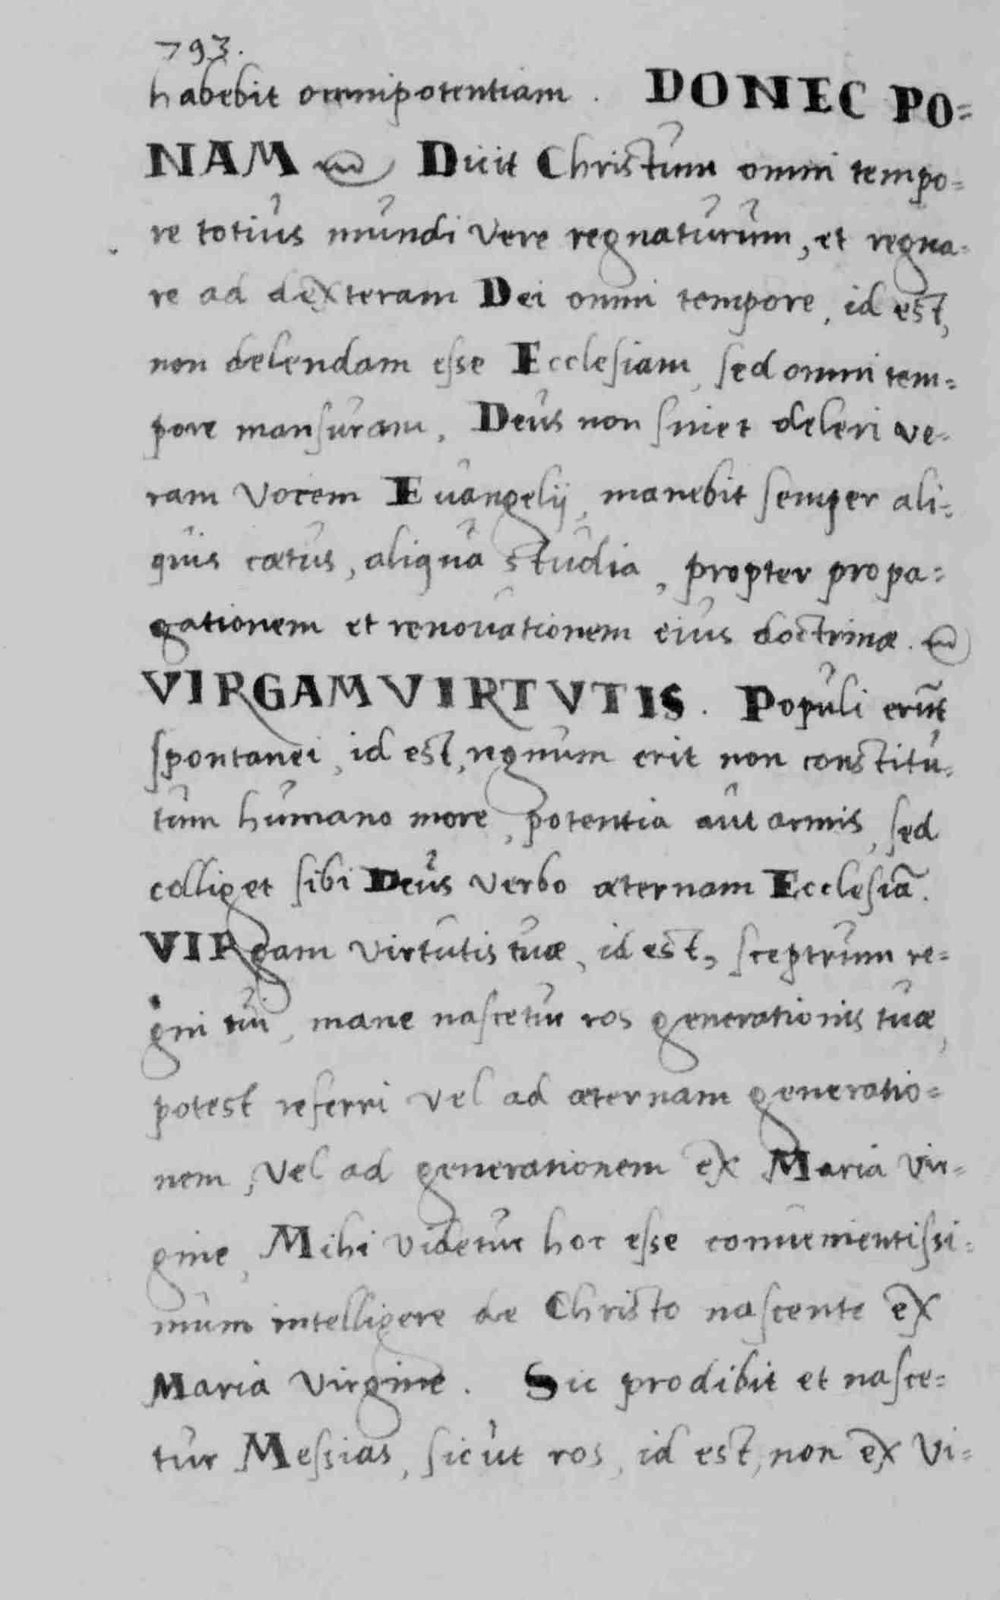 793.
habebit omnipotentiam. DONEC PO=
NAM Dicit Christum omni tempo=
re totius mundi vere regnaturum, et regna=
re ad dexteram Dei omni tempore, id est,
non delendam esse Ecclesiam, sed omni tem=
pore mansuram. Deus non sinet deleri ve=
ram vocem Euangelij, manebit semper ali=
quis cœtus, aliqua studia, propter propa=
gationem et renouationem eius doctrinæ.
VIRGAM VIRTVTIS. Populi erūt
spontanei, id est, regnum erit non constitu=
tum humano more, potentia aut armis, sed
colliget sibi Deus verbo æternam Ecclesiā.
VIRgam virtutis tuæ, id est, sceptrum re=
gni tui, mane nascetur ros generationis tuæ,
potest referri vel ad æternam generatio=
nem, vel ad generationem ex Maria vir=
gine, Mihi videtur hoc esse conuenientissi=
mum intelligere de Christo nascente ex
Maria virgine. Sic prodibit et nasce=
tur Messias, sicut ros, id est, non ex vi=